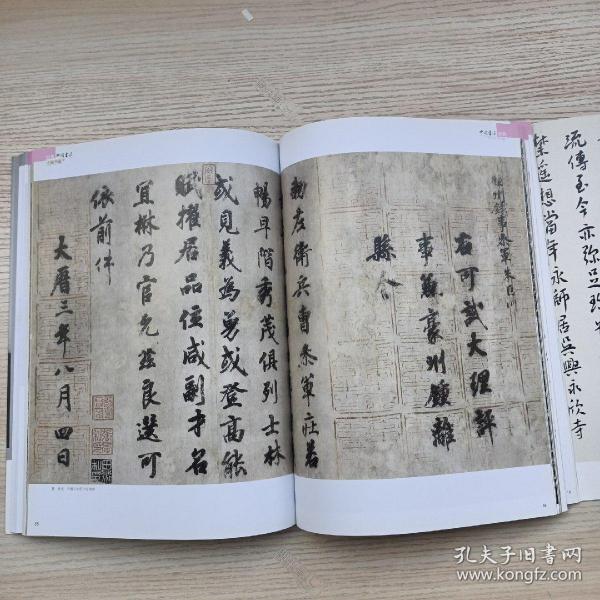 流傳至今亦弥足珍
遙想當年永師居吳興永欣寺
錄事參軍朱巨川
右可試大理評
事兼豪州鍾離
縣令
勑左衛兵曹參軍莊若
暢早階秀茂俱列士林
或見義為勇或登高能
賦擢居品位咸副才名
宜楙乃官允茲良選可
依前件
大曆三年八月四日
孔夫子旧书网
www.kongfz.com